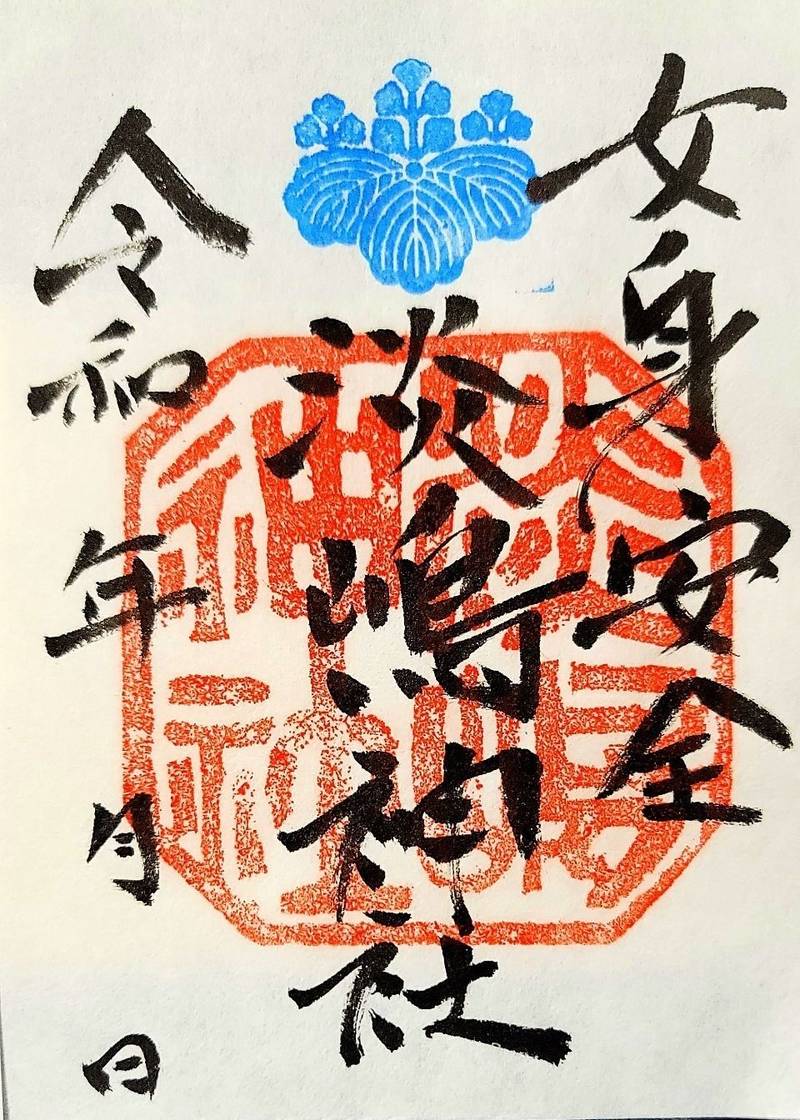 女身安全
淡嶋神社
令和 年 月 日